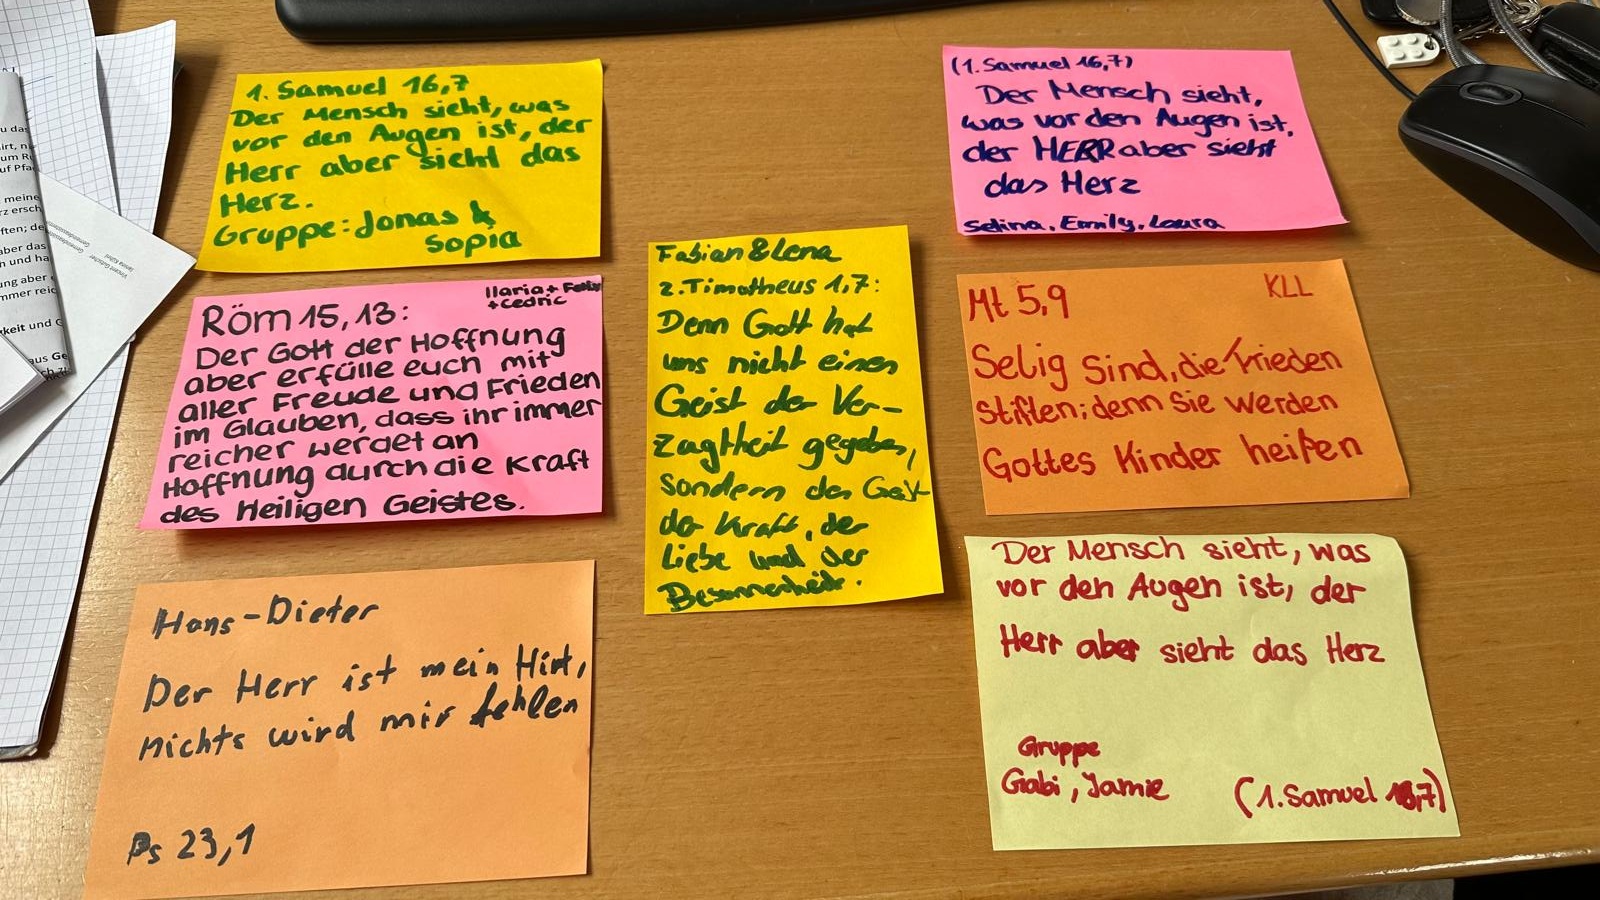 1. Samuel 16,7
Der Mensch sieht, was
vor den Augen ist, der
Herr aber sieht das
Herz.
Gruppe: Jonas &
Sopia
Ilaria + Felix
+ Cedric
Röm 15, 13:
Der Gott der Hoffnung
aber erfülle euch mit
aller Freude und Frieden
im Glauben, dass ihr immer
reicher werdet an
Hoffnung durch die Kraft
des Heiligen Geistes.
Hans-Dieter
Der Herr ist mein Hirt,
nichts wird mir fehlen
Ps 23,1
Fabian & Lena
2. Timotheus 1,7:
Denn Gott hat
uns nicht einen
Geist der Ver-
zagtheit gegeben,
sondern den Geist
der Kraft, der
Liebe und der
Besonnenheit.
(1. Samuel 16,7)
Der Mensch sieht,
was vor den Augen ist,
der HERR aber sieht
das Herz
Selina, Emily, Laura
Mt 5,9
KLL
Selig sind, die Frieden
stiften; denn Sie werden
Gottes Kinder heißen
Der Mensch sieht, was
vor den Augen ist, der
Herr aber sieht das Herz
Gruppe
Gabi, Jamie
(1. Samuel 16,7)